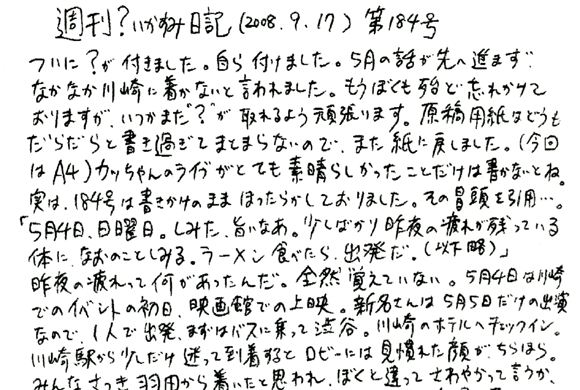 週刊?いかすみ日記(2008.9.17)第184号
ついに?が付きました。自ら付けました。5月の話が先へ進まず
なかなか川崎に着かないと言われました。もうぼくも殆ど忘れかけて
おりますが、いつかまだ"?"が取れるよう頑張ります。原稿用紙はどうも
だらだらと書き過ぎてまとまらないので、また紙に戻しました。(今回
はA4)カッちゃんのライブがとても素晴らしかったことだけは書かないとね。
実は、184号は書きかけのままほったらかしておりました。その冒頭を引用…。
「5月4日、日曜日。しみた、旨いなあ。少しばかり昨夜の疲れが残っている
体に、なおのことしみる。ラーメン食べたら、出発だ。(以下略)」
昨夜の疲れって何があったんだ。全然覚えていない。5月4日は川崎
でのイベントの初日、映画館での上映。新名さんは5月5日だけの出演
なので、1人で出発、まずはバスに乗って渋谷。川崎のホテルへチェックイン。
川崎駅から少しだけ迷って到着するとロビーには見慣れた顔がちらほら。
みんなさっき羽田から着いたと思われ、ぼくと違ってさわやかって言うか、